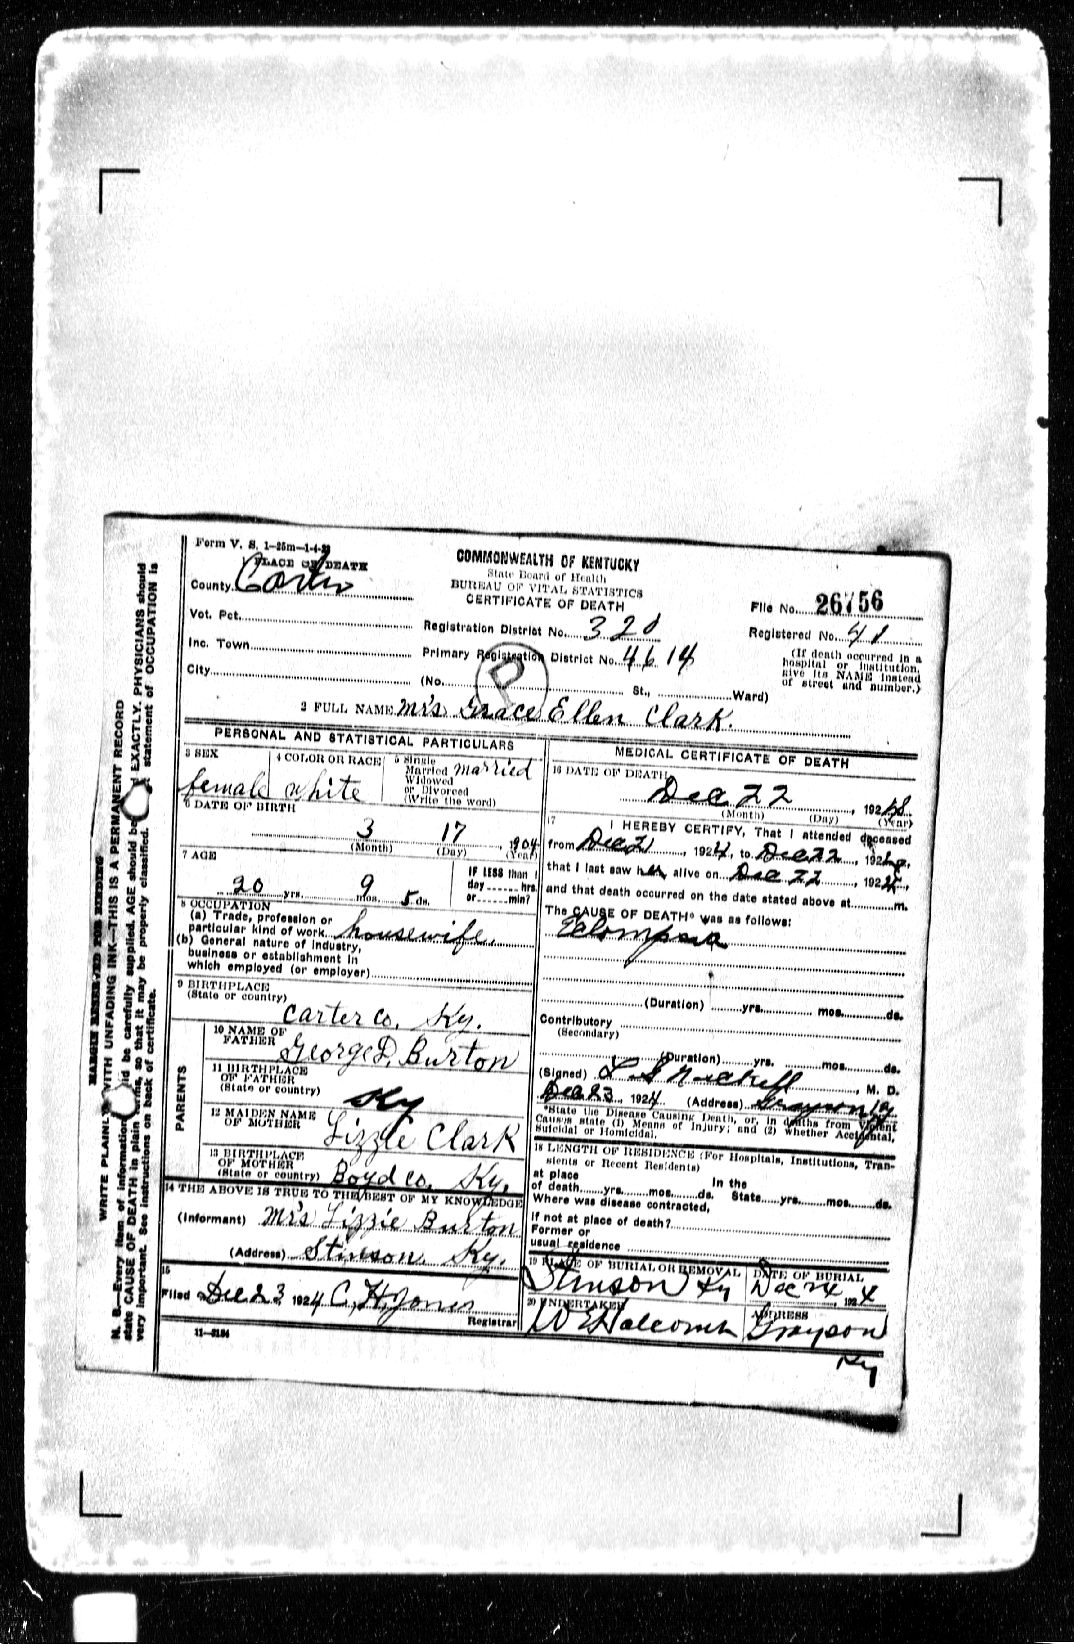 Form V. S. 1-25m-1-4-23
PLACE OF DEATH
County Carter
Vot. Pct.
Inc. Town
City
COMMONWEALTH OF KENTUCKY
State Board of Health
BUREAU OF VITAL STATISTICS
CERTIFICATE OF DEATH
File No. 26756
Registration District No. 320
Registered No. 41
Primary Registration District No. 4614
(If death occurred in a hospital or institution, give its NAME instead of street and number.)
(No. St., Ward)
D
2 FULL NAME Mrs Grace Ellen Clark.
PERSONAL AND STATISTICAL PARTICULARS
3 SEX
female
4 COLOR OR RACE
white
5 Single
Married married
Widowed
or Divorced
(Write the word)
6 DATE OF BIRTH
3 17, 1904
(Month) (Day) (Year)
7 AGE
20 yrs. 9 mos. 5 ds.
IF LESS than 1
day hrs.
or min?
8 OCCUPATION
(a) Trade, profession or
particular kind of work housewife.
(b) General nature of industry,
business or establishment in
which employed (or employer)
9 BIRTHPLACE
(State or country)
Carter co. Ky.
PARENTS
10 NAME OF
FATHER George D. Burton
11 BIRTHPLACE
OF FATHER
(State or country) Ky
12 MAIDEN NAME
OF MOTHER Lizzie Clark
13 BIRTHPLACE
OF MOTHER
(State or country) Boyd co. Ky.
14 THE ABOVE IS TRUE TO THE BEST OF MY KNOWLEDGE
(Informant) Mrs Lizzie Burton
(Address) Stinson, Ky.
15
Filed Dec 23 1924 C. H. Jones
Registrar
11-3184
MEDICAL CERTIFICATE OF DEATH
16 DATE OF DEATH
Dec 22, 192
(Month) (Day) (Year)
17 I HEREBY CERTIFY, That I attended deceased
from Dec 21, 1924, to Dec 22, 1924,
that I last saw her alive on Dec 22, 1924,
and that death occurred on the date stated above at m.
The CAUSE OF DEATH* was as follows:
Eclampsia
(Duration) yrs. mos. ds.
Contributory
(Secondary)
(Duration) yrs. mos. ds.
(Signed) L S, M. D.
Dec 23, 1924 (Address) Grayson Ky
*State the Disease Causing Death, or, in deaths from Violent
Causes state (1) Means of Injury; and (2) whether Accidental,
Suicidal or Homicidal.
18 LENGTH OF RESIDENCE (For Hospitals, Institutions, Transients or Recent Residents)
at place In the
of death yrs. mos. ds. State yrs. mos. ds.
Where was disease contracted,
if not at place of death?
Former or
usual residence
19 PLACE OF BURIAL OR REMOVAL
Stinson Ky
DATE OF BURIAL
Dec 24, 1924
20 UNDERTAKER
W E Halcomb
ADDRESS
Grayson
Ky
MARGIN RESERVED FOR BINDING
WRITE PLAINLY WITH UNFADING INK—THIS IS A PERMANENT RECORD
N. B.—Every item of information should be carefully supplied. AGE should be EXACTLY. PHYSICIANS should
state CAUSE OF DEATH in plain terms, so that it may be properly classified. statement of OCCUPATION is
very important. See instructions on back of certificate.